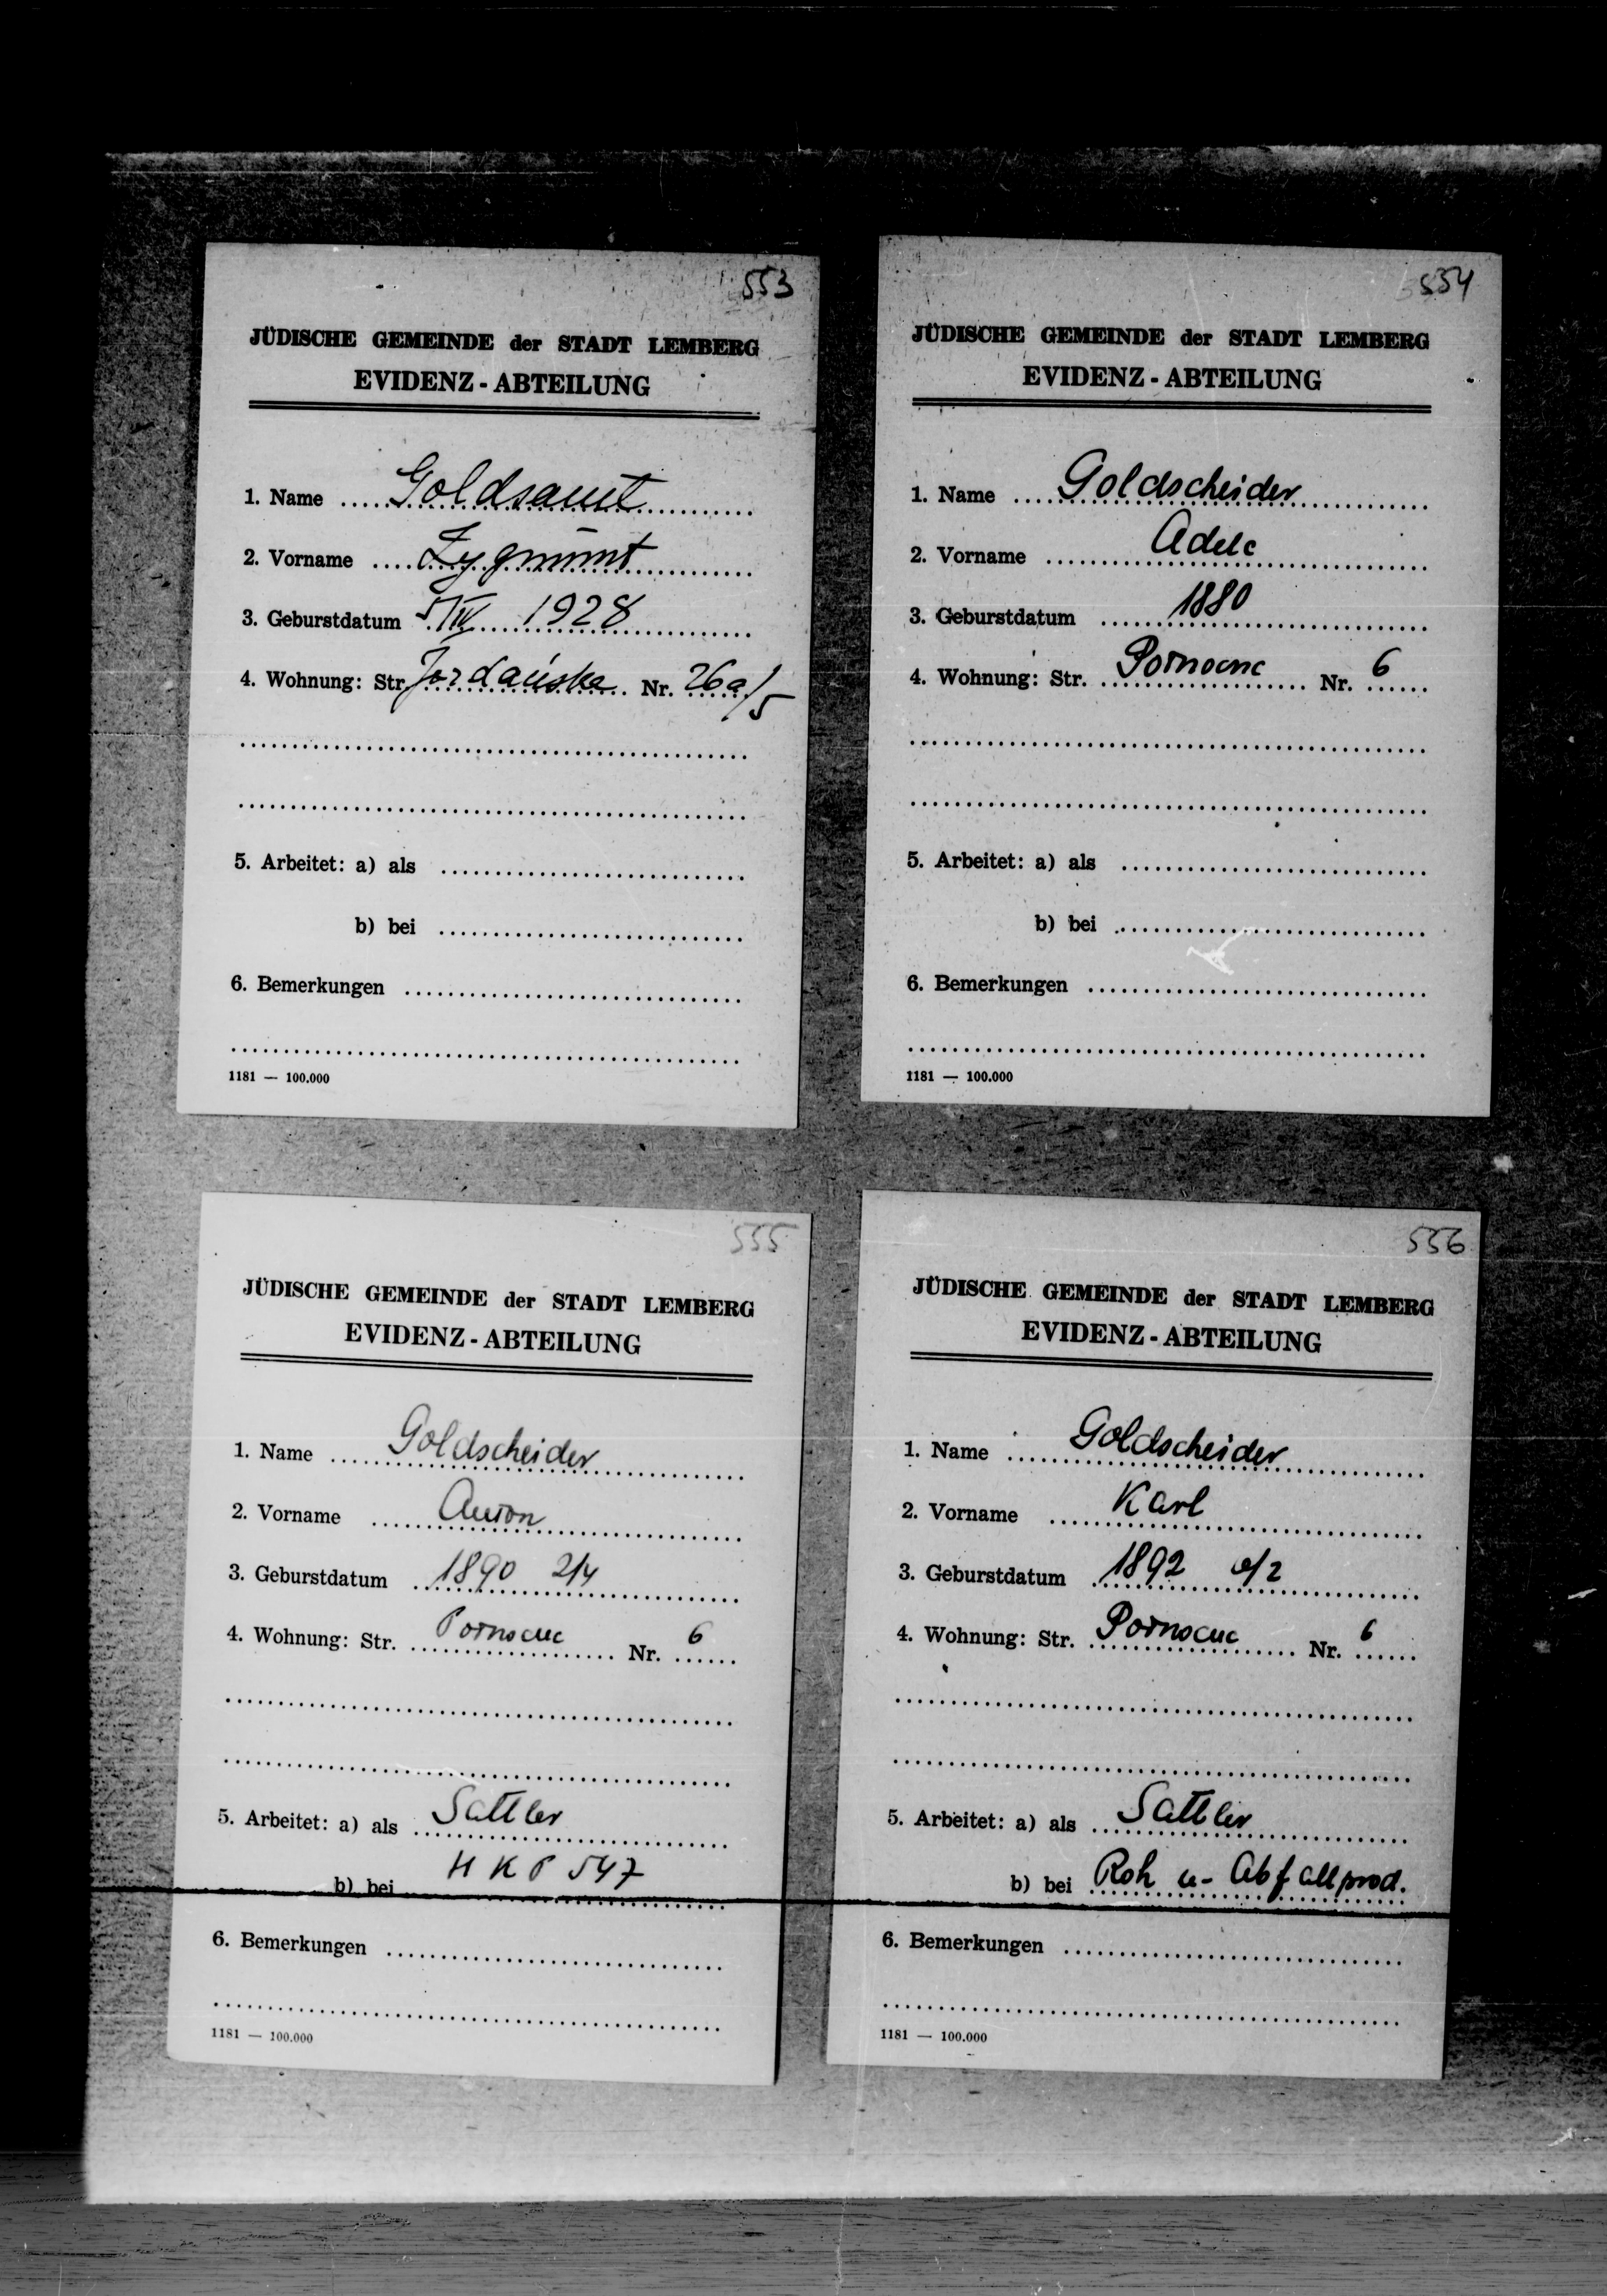 553
JÜDISCHE GEMEINDE der STADT LEMBERG
EVIDENZ - ABTEILUNG
1. Name Goldsamt
2. Vorname Zygmunt
3. Geburstdatum 5/IV 1928
4. Wohnung: Str. Jordańska Nr. 26a/5
5. Arbeitet: a) als
b) bei
6. Bemerkungen
1181 — 100.000
554
JÜDISCHE GEMEINDE der STADT LEMBERG
EVIDENZ - ABTEILUNG
1. Name Goldscheider
2. Vorname Adele
3. Geburstdatum 1880
4. Wohnung: Str. Nr. 6
5. Arbeitet: a) als
b) bei
6. Bemerkungen
1181 — 100.000
555
JÜDISCHE GEMEINDE der STADT LEMBERG
EVIDENZ - ABTEILUNG
1. Name Goldscheider
2. Vorname
3. Geburstdatum 1890 2/4
4. Wohnung: Str. Nr. 6
5. Arbeitet: a) als Sattler
b) bei H K P 547
6. Bemerkungen
1181 — 100.000
556
JÜDISCHE GEMEINDE der STADT LEMBERG
EVIDENZ - ABTEILUNG
1. Name Goldscheider
2. Vorname Karl
3. Geburstdatum 1892
4. Wohnung: Str. Nr. 6
5. Arbeitet: a) als Sattler
b) bei Roh u- Abfallprod.
6. Bemerkungen
1181 — 100.000